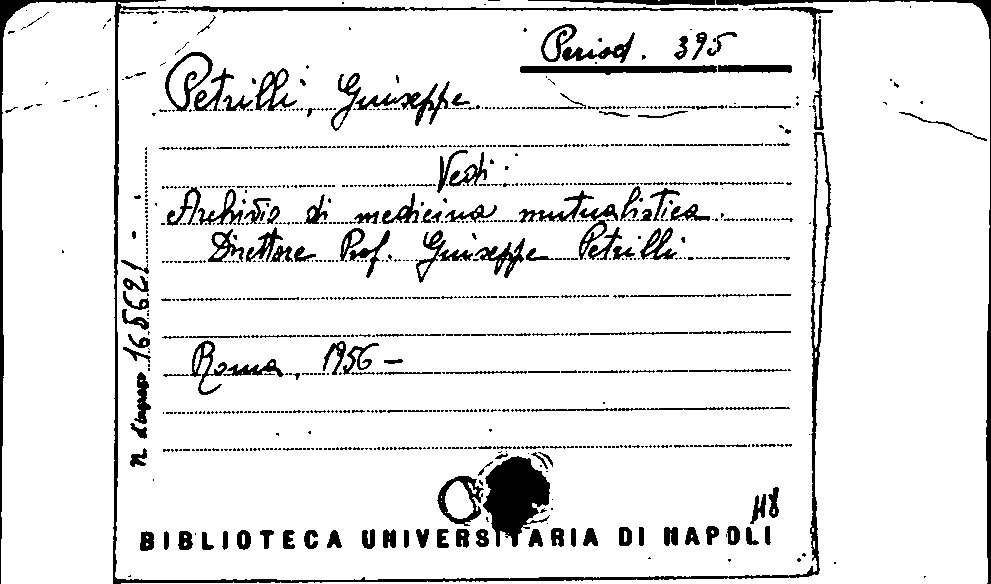 Period. 395
Petrilli, Giuseppe.
Vedi:
Archivio di medicina mutualistica.
Direttore Prof. Giuseppe Petrilli.
Roma, 1956 –
n. d'ingresso 165621
118
BIBLIOTECA UNIVERSITARIA DI NAPOLI